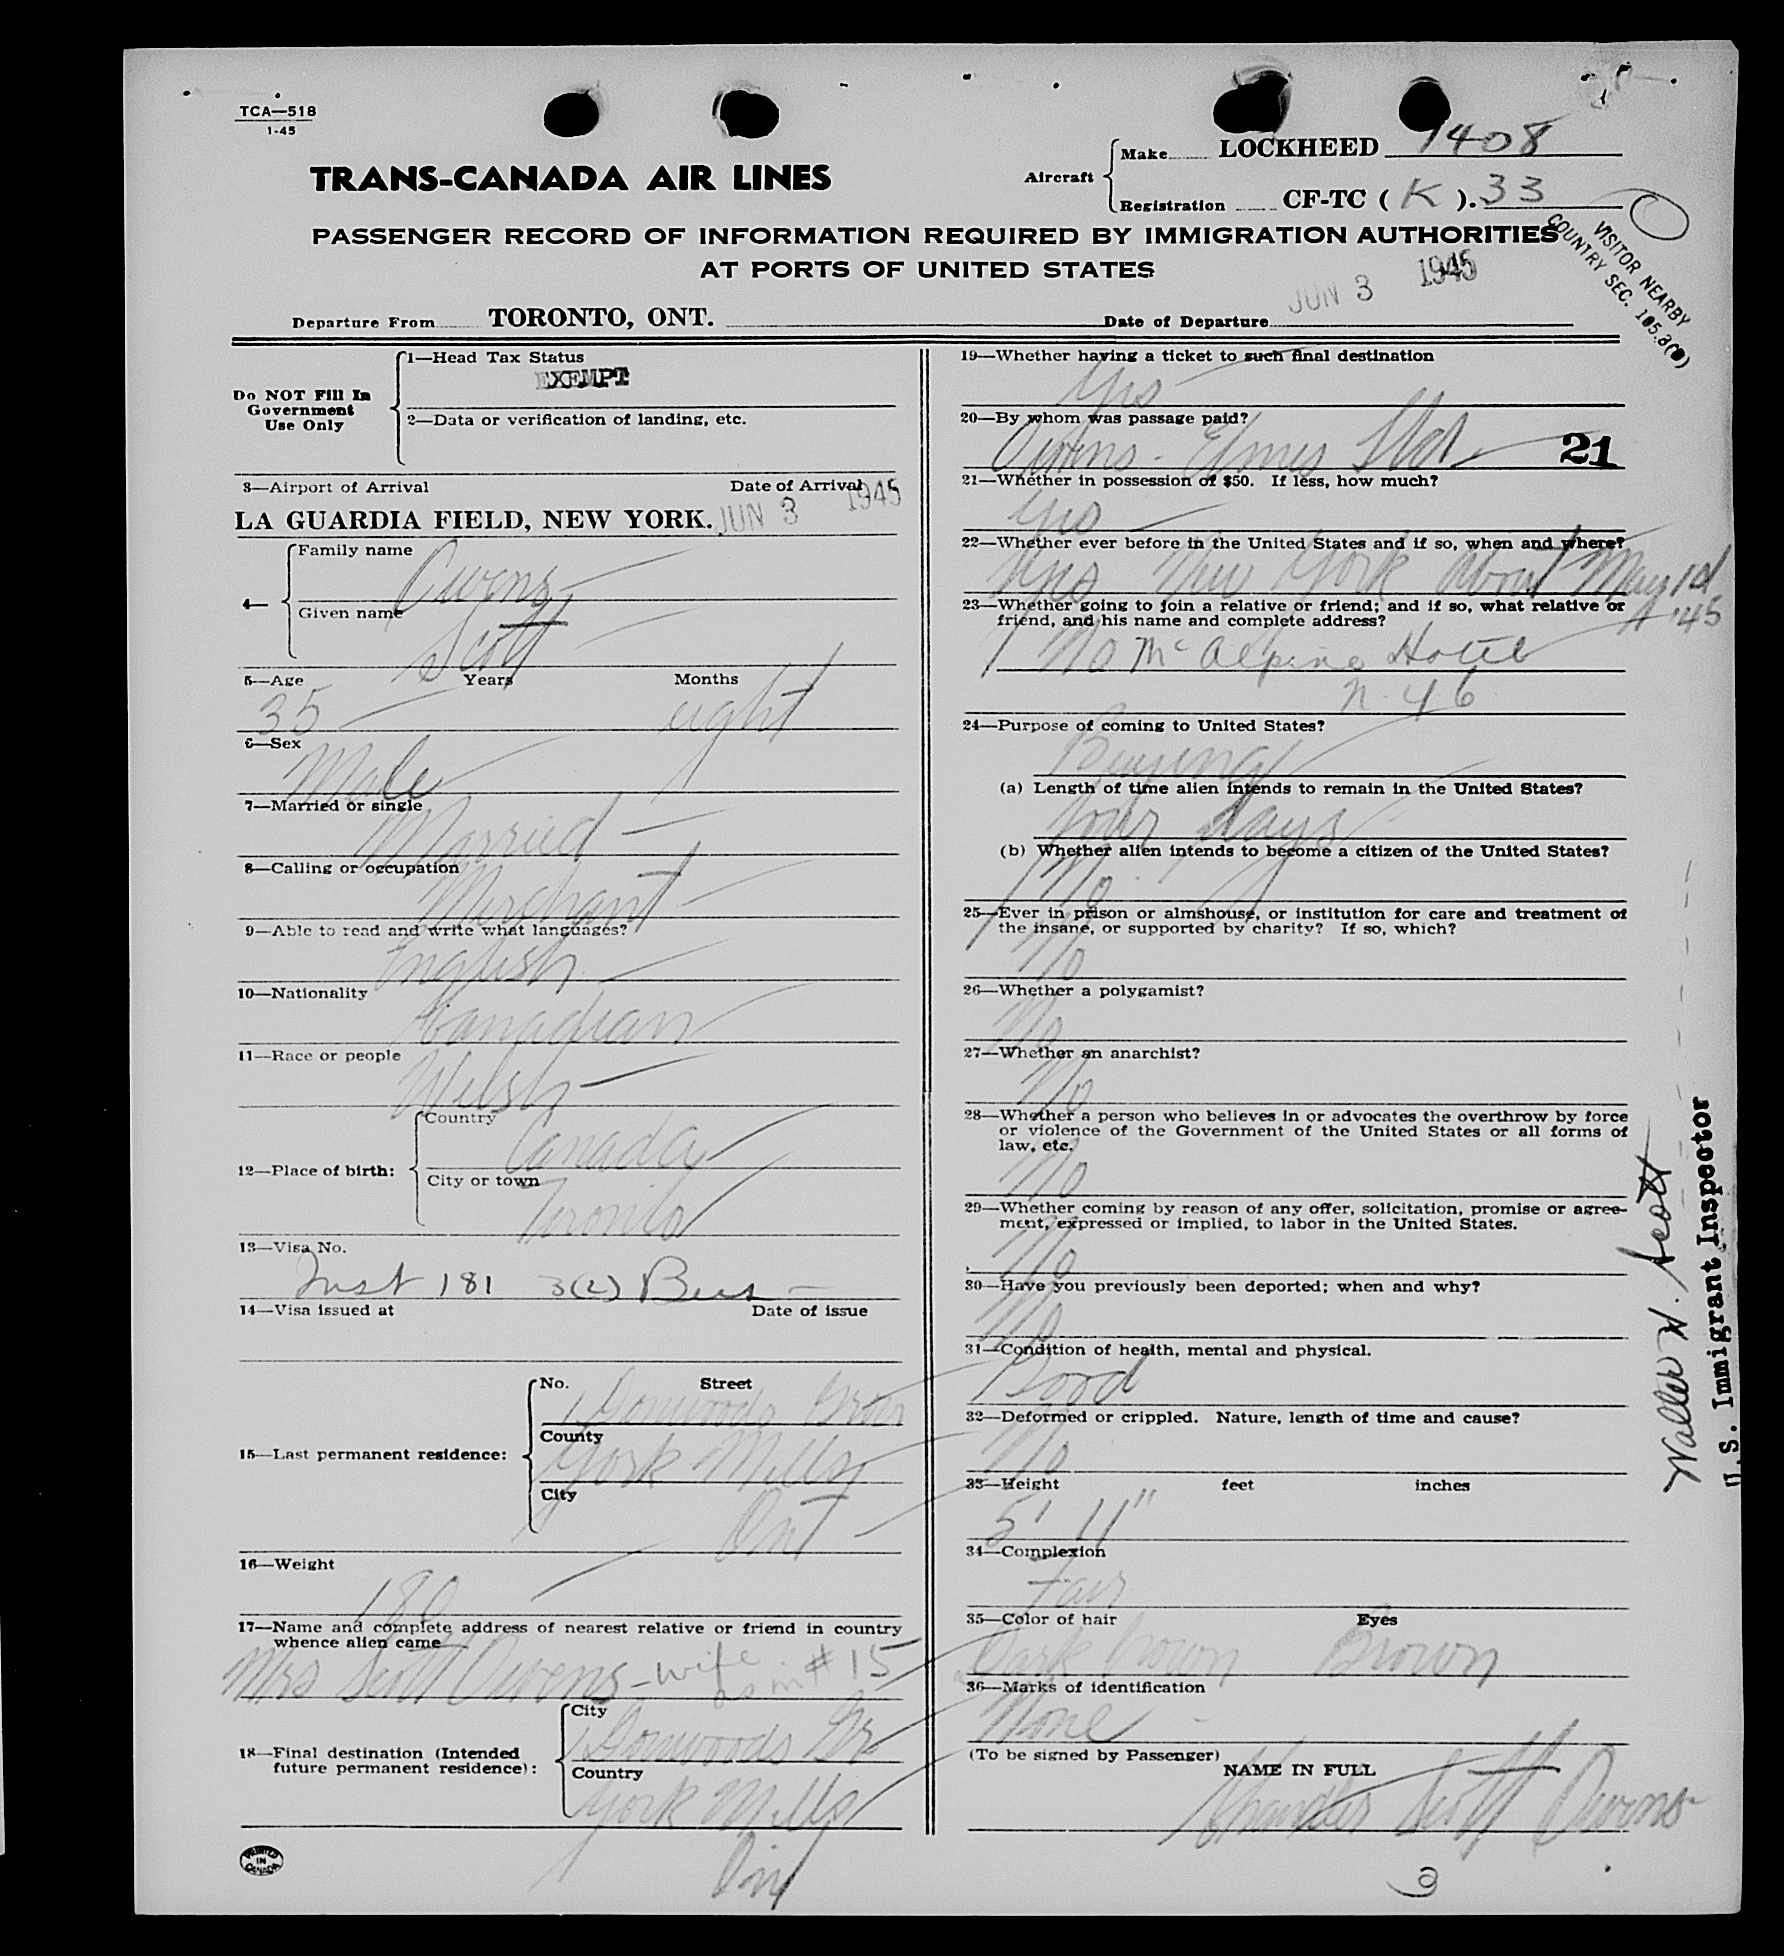 TCA—518
1-45
TRANS-CANADA AIR LINES
Aircraft
Make LOCKHEED 1408
Registration CF-TC ( K ). 33
PASSENGER RECORD OF INFORMATION REQUIRED BY IMMIGRATION AUTHORITIES
AT PORTS OF UNITED STATES
VISITOR NEARBY
COUNTRY SEC.
Departure From TORONTO, ONT. Date of Departure JUN 3 1945
Do NOT Fill In
Government
Use Only
1—Head Tax Status
EXEMPT
2—Data or verification of landing, etc.
3—Airport of Arrival Date of Arrival
LA GUARDIA FIELD, NEW YORK. JUN 3 1945
4—
Family name
Owens
Given name
Scott
5—Age Years Months
35 eight
6—Sex
Male
7—Married or single
Married
8—Calling or occupation
Merchant
9—Able to read and write what languages?
English
10—Nationality
Canadian
11—Race or people
Welsh
12—Place of birth:
Country
Canada
City or town
Toronto
13—Visa No.
Inst 181 3(2) Bus
14—Visa issued at Date of issue
15—Last permanent residence:
No. Street
1 Donwoods Grov
County
York Mills
City
Ont
16—Weight
180
17—Name and complete address of nearest relative or friend in country
whence alien came
Mrs Scott Owens - wife #15
as in
18—Final destination (Intended
future permanent residence):
City
1 Donwoods Gr
Country
York Mills
Ont
PRINTED
IN
CANADA
19—Whether having a ticket to such final destination
Yes
20—By whom was passage paid?
Owens - Elmes Ltd 21
21—Whether in possession of $50. If less, how much?
Yes
22—Whether ever before in the United States and if so, when and where?
Yes New York About May 1st
'45
23—Whether going to join a relative or friend; and if so, what relative or
friend, and his name and complete address?
No Mc Alpine Hotel
n. y 6
24—Purpose of coming to United States?
Buying
(a) Length of time alien intends to remain in the United States?
four days
(b) Whether alien intends to become a citizen of the United States?
No
25—Ever in prison or almshouse, or institution for care and treatment of
the insane, or supported by charity? If so, which?
No
26—Whether a polygamist?
No
27—Whether an anarchist?
No
28—Whether a person who believes in or advocates the overthrow by force
or violence of the Government of the United States or all forms of
law, etc.
No
29—Whether coming by reason of any offer, solicitation, promise or agree-
ment, expressed or implied, to labor in the United States.
No
30—Have you previously been deported; when and why?
No
31—Condition of health, mental and physical.
Good
32—Deformed or crippled. Nature, length of time and cause?
No
33—Height feet inches
5' 11"
34—Complexion
Fair
35—Color of hair Eyes
Dark brown Brown
36—Marks of identification
None
(To be signed by Passenger)
NAME IN FULL
Scott Owens
Walter W. Scott
U.S. Immigrant Inspector